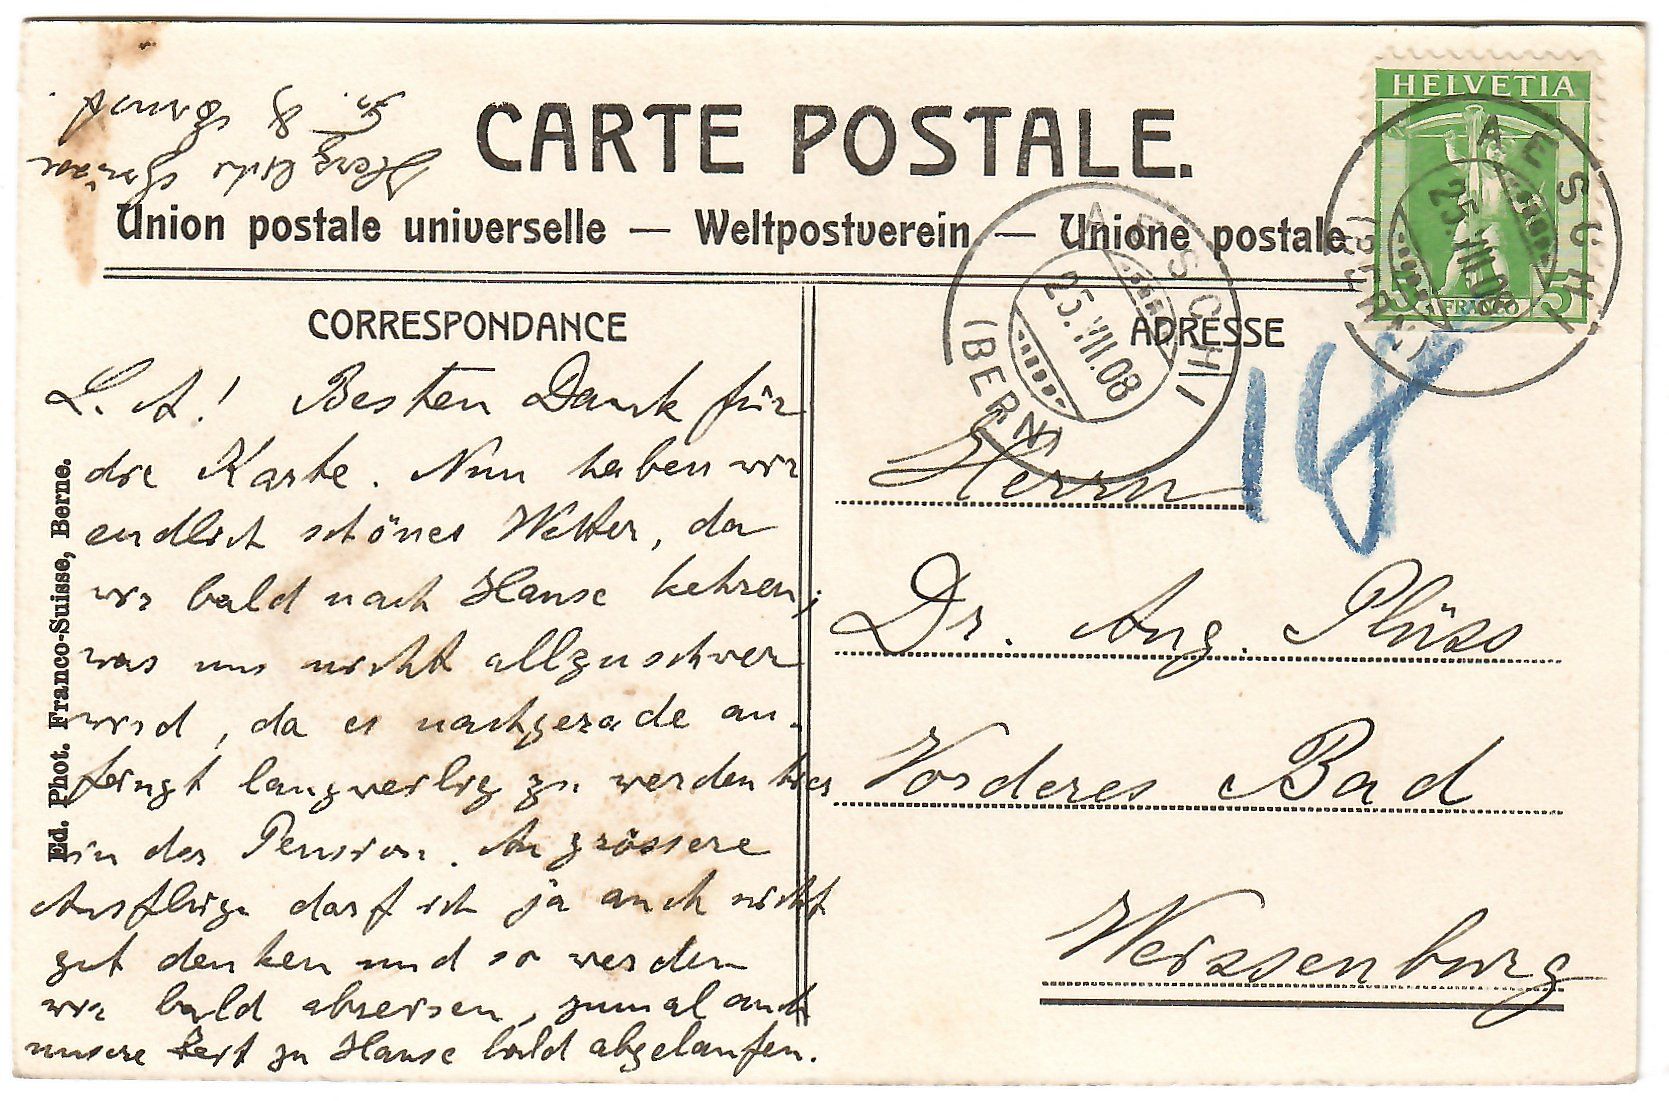 CARTE POSTALE.
Union postale universelle — Weltpostverein — Unione postale
HELVETIA
FRANCO
5
AESCHI
(BERN)
25.VIII.08
AESCHI
(BERN)
25.VIII.08
CORRESPONDANCE
ADRESSE
L. A! Besten Dank für
die Karte. Nun haben wir
endlich schönes Wetter, da
wir bald nach Hause kehren,
was uns nicht allzuschwer
wird, da es nachgerade an-
fängt langweilig zu werden hier
in der Pension. An grössere
Ausflüge darf ich ja auch nicht
gut denken und so werden
wir bald abreisen, zumal auch
unsere Zeit zu Hause bald abgelaufen.
Herzliche Grüsse
Ernst
Herrn
Dr. Aug. Plüss
Vorderes Bad
Weissenburg
18
Ed. Phot. Franco-Suisse, Berne.